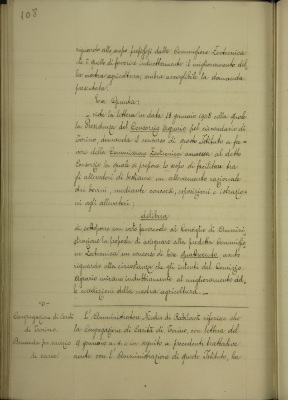 108
riguardo allo scopo prefissosi dalla Commissione Zootecnica
che è quello di favorire indirettamente il miglioramento del
la nostra agricoltura, ritiene accoglibile la domanda
presentata.
La Giunta:
vista la lettera in data 18 gennaio 1908 colla quale
la Presidenza del Consorzio Agrario pel circondario di
Torino, domanda il concorso di questo Istituto a fa-
vore della Commissione Zootecnica annessa al detto
Consorzio la quale si prefigge lo scopo di facilitare tra
gli allevatori di bestiame un allevamento razionale
dei bovini, mediante concorsi, esposizioni e istruzio
ni agli allevatori;
delibera
di sottoporre con voto favorevole al Consiglio di Ammini
strazione la proposta di assegnare alla predetta Commissio
ne Zootecnica un concorso di lire avuto
riguardo alla circostanza che gli intenti del Consorzio
Agrario mirano indirettamente al miglioramento del
le condizioni della nostra agricoltura.
Congregazione di Carità
di Torino.
Domanda per
di
L'Amministratore riferisce che
la Congregazione di Carità di Torino, con lettera del
gennaio a. c. in seguito a precedenti trattative
avute con l'Amministrazione di questo Istituto, ha